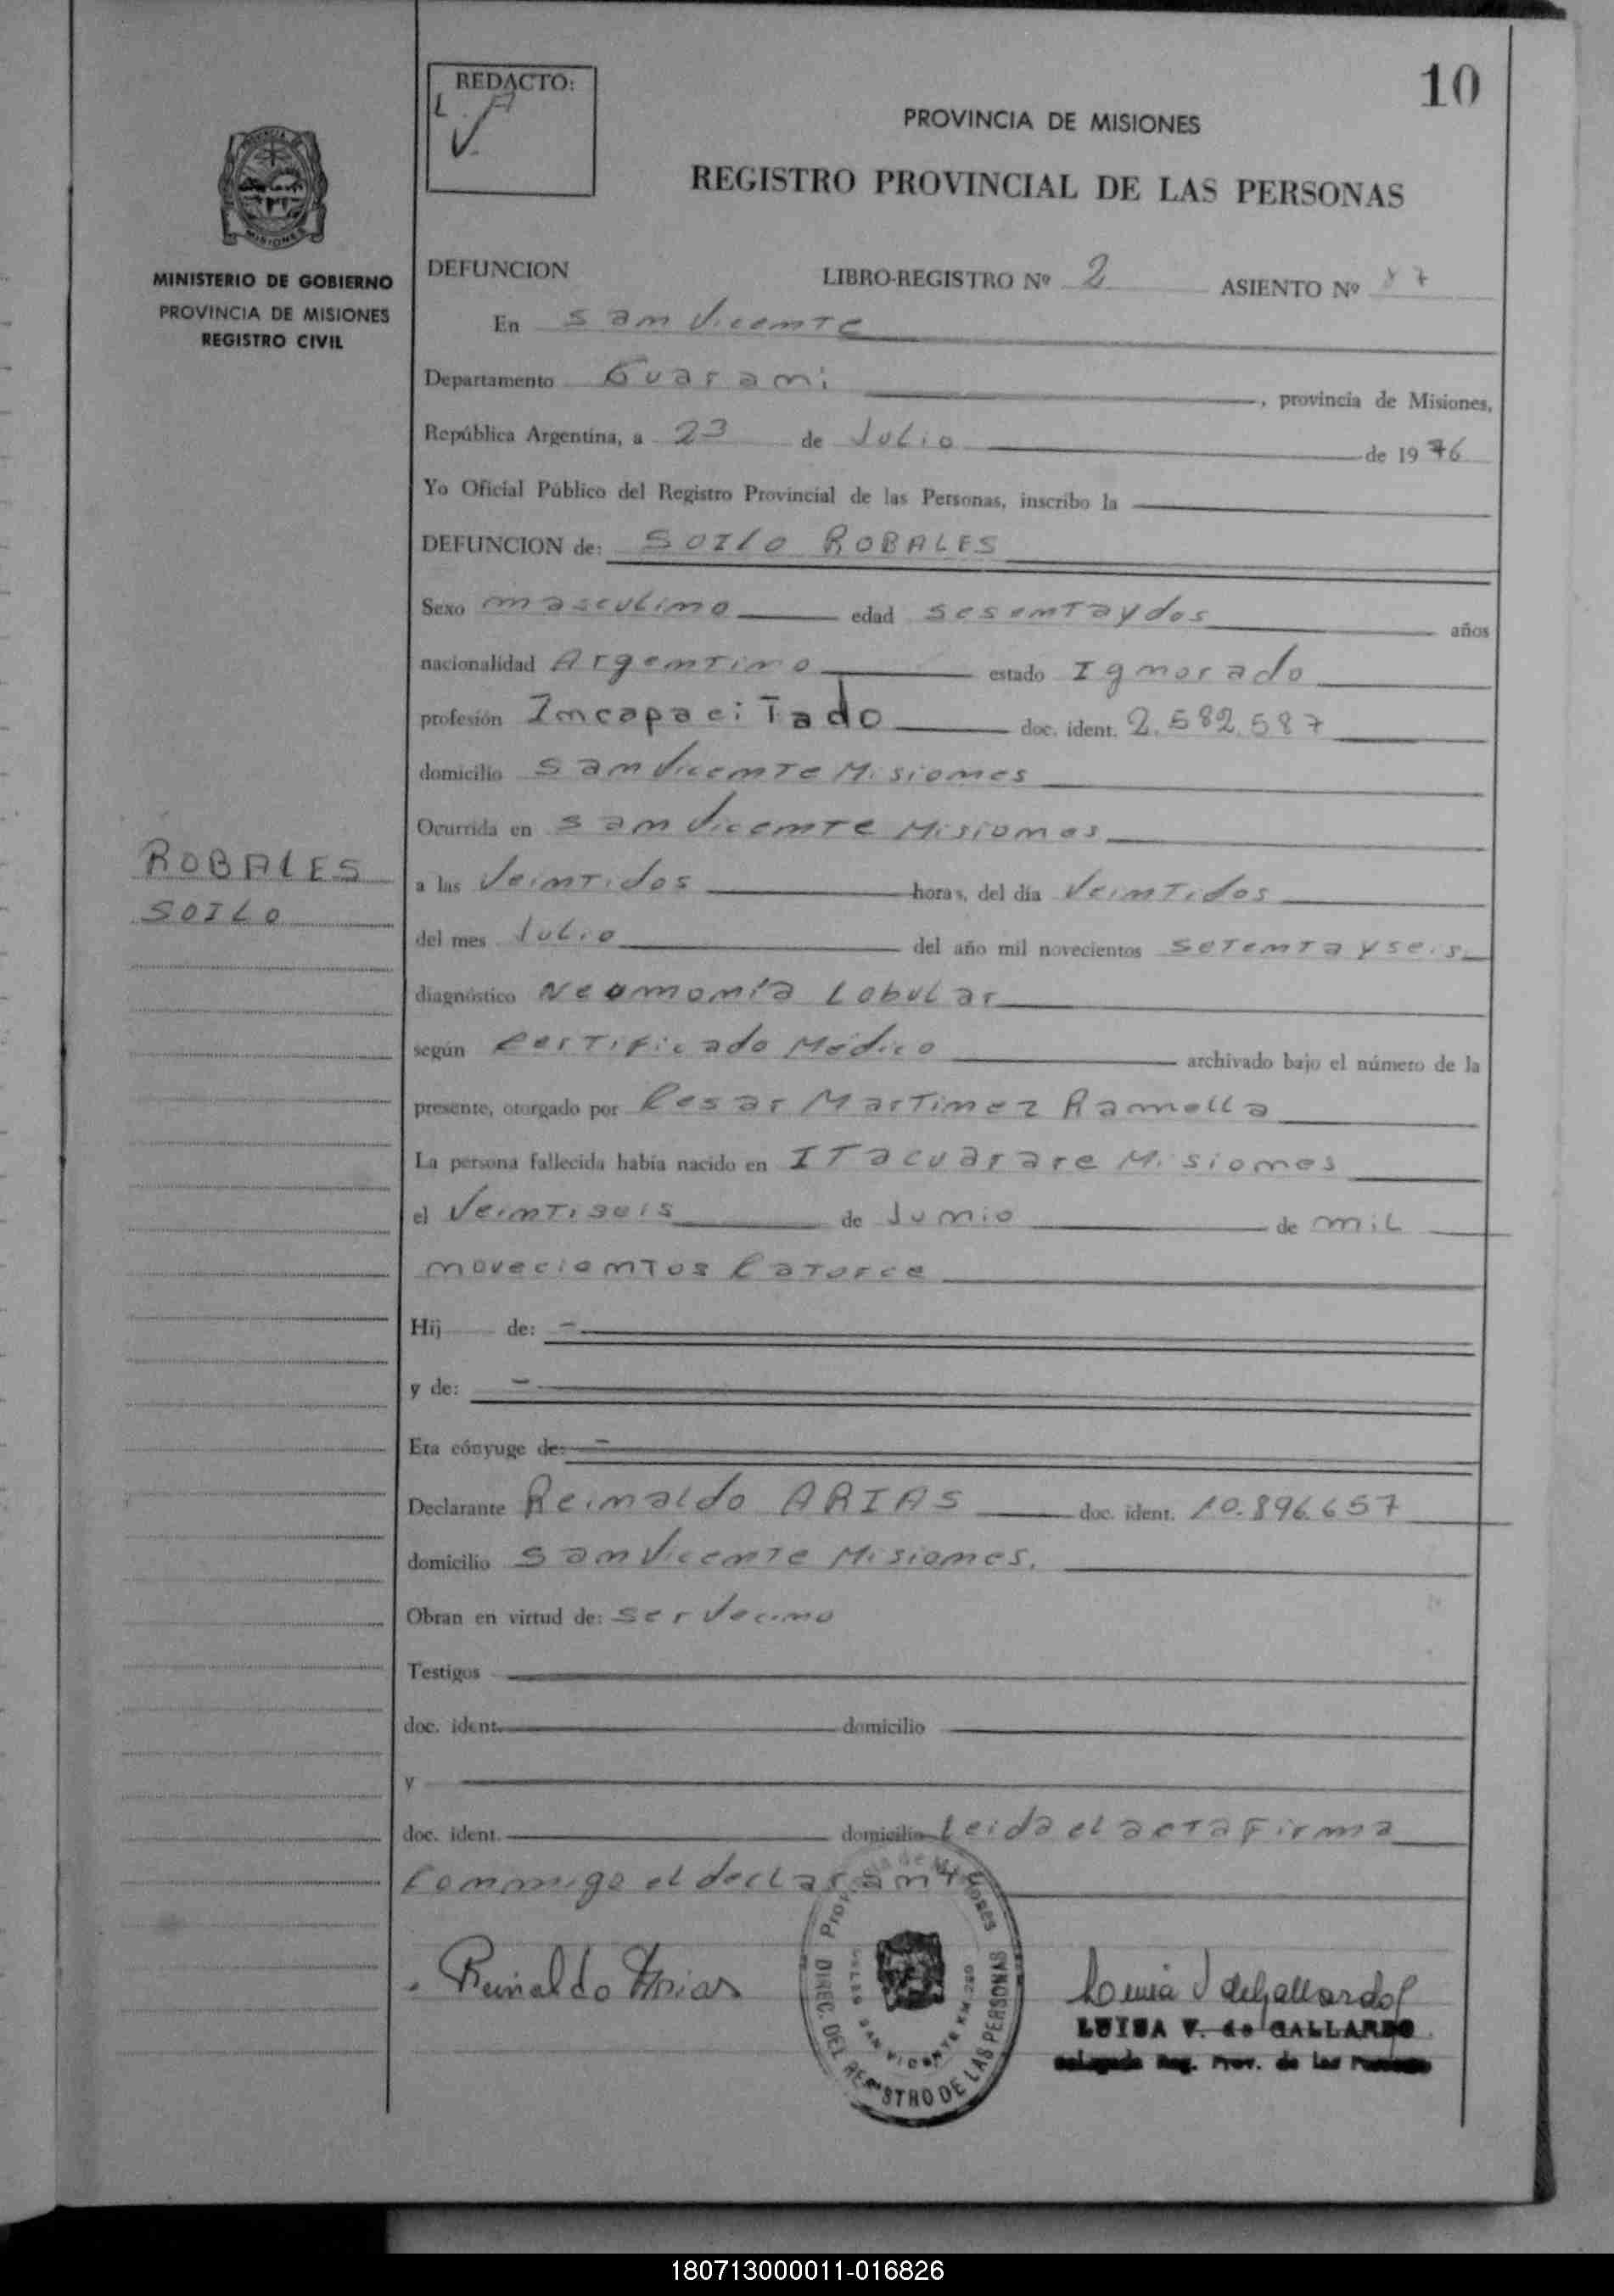 10
REDACTO:
L. A
PROVINCIA DE MISIONES
REGISTRO PROVINCIAL DE LAS PERSONAS
MINISTERIO DE GOBIERNO
PROVINCIA DE MISIONES
REGISTRO CIVIL
DEFUNCION LIBRO-REGISTRO Nº 2 ASIENTO Nº 87
En San Vicente
Departamento Guarani, provincia de Misiones,
República Argentina, a 23 de Julio de 1976
Yo Oficial Público del Registro Provincial de las Personas, inscribo la
DEFUNCION de: SOILO ROBALES
Sexo masculino edad sesentaydos años
nacionalidad Argentino estado Ignorado
profesión Incapacitado doc. ident. 2.582.587
domicilio San Vicente Misiones
Ocurrida en San Vicente Misiones
ROBALES
SOILO
a las Veintidos horas, del día Veintidos
del mes Julio del año mil novecientos setenta y seis
diagnóstico Neomonía Lobular
según Certificado Médico archivado bajo el número de la
presente, otorgado por Cesar Martinez Ramella
La persona fallecida había nacido en ITacuarare Misiones
el Veintiseis de Junio de mil
novecientos Catorce
Hij de: -
y de: -
Era cónyuge de: -
Declarante Reinaldo ARIAS doc. ident. 10.896.657
domicilio San Vicente Misiones.
Obran en virtud de: ser Vecino
Testigos
doc. ident. domicilio
y
doc. ident. domicilio Leida el acta Firma
Conmigo el declarante
Reinaldo Arias
Provincia de Misiones
DIREC. DEL REGISTRO DE LAS PERSONAS
SAN VICENTE KM.
Luisa V de Gallardo
LUISA V. de GALLARDO
Delegada Reg. Prov. de las Personas
180713000011-016826